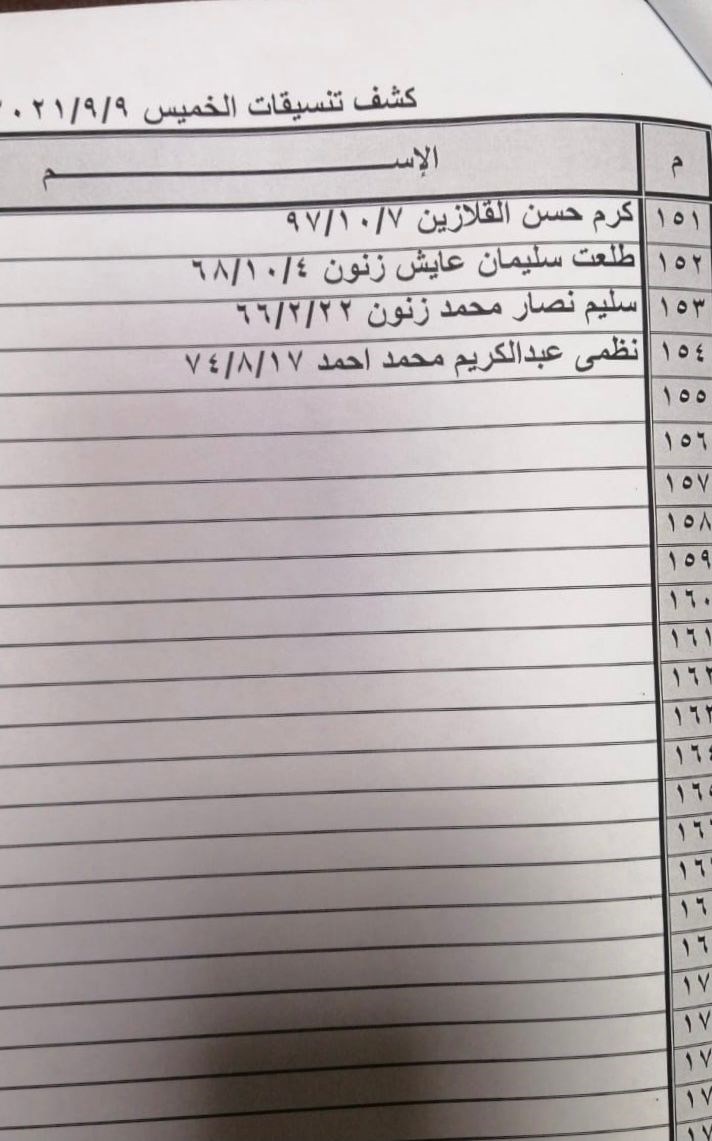 كشف تنسيقات الخميس ٢٠٢١/٩/٩
م الإســـــــــم
١٥١ كرم حسن القلازين ٩٧/١٠/٧
١٥٢ طلعت سليمان عايش زنون ٦٨/١٠/٤
١٥٣ سليم نصار محمد زنون ٦٦/٢/٢٢
١٥٤ نظمى عبدالكريم محمد احمد ٧٤/٨/١٧
١٥٥
١٥٦
١٥٧
١٥٨
١٥٩
١٦٠
١٦١
١٦٢
١٦٣
١٦٤